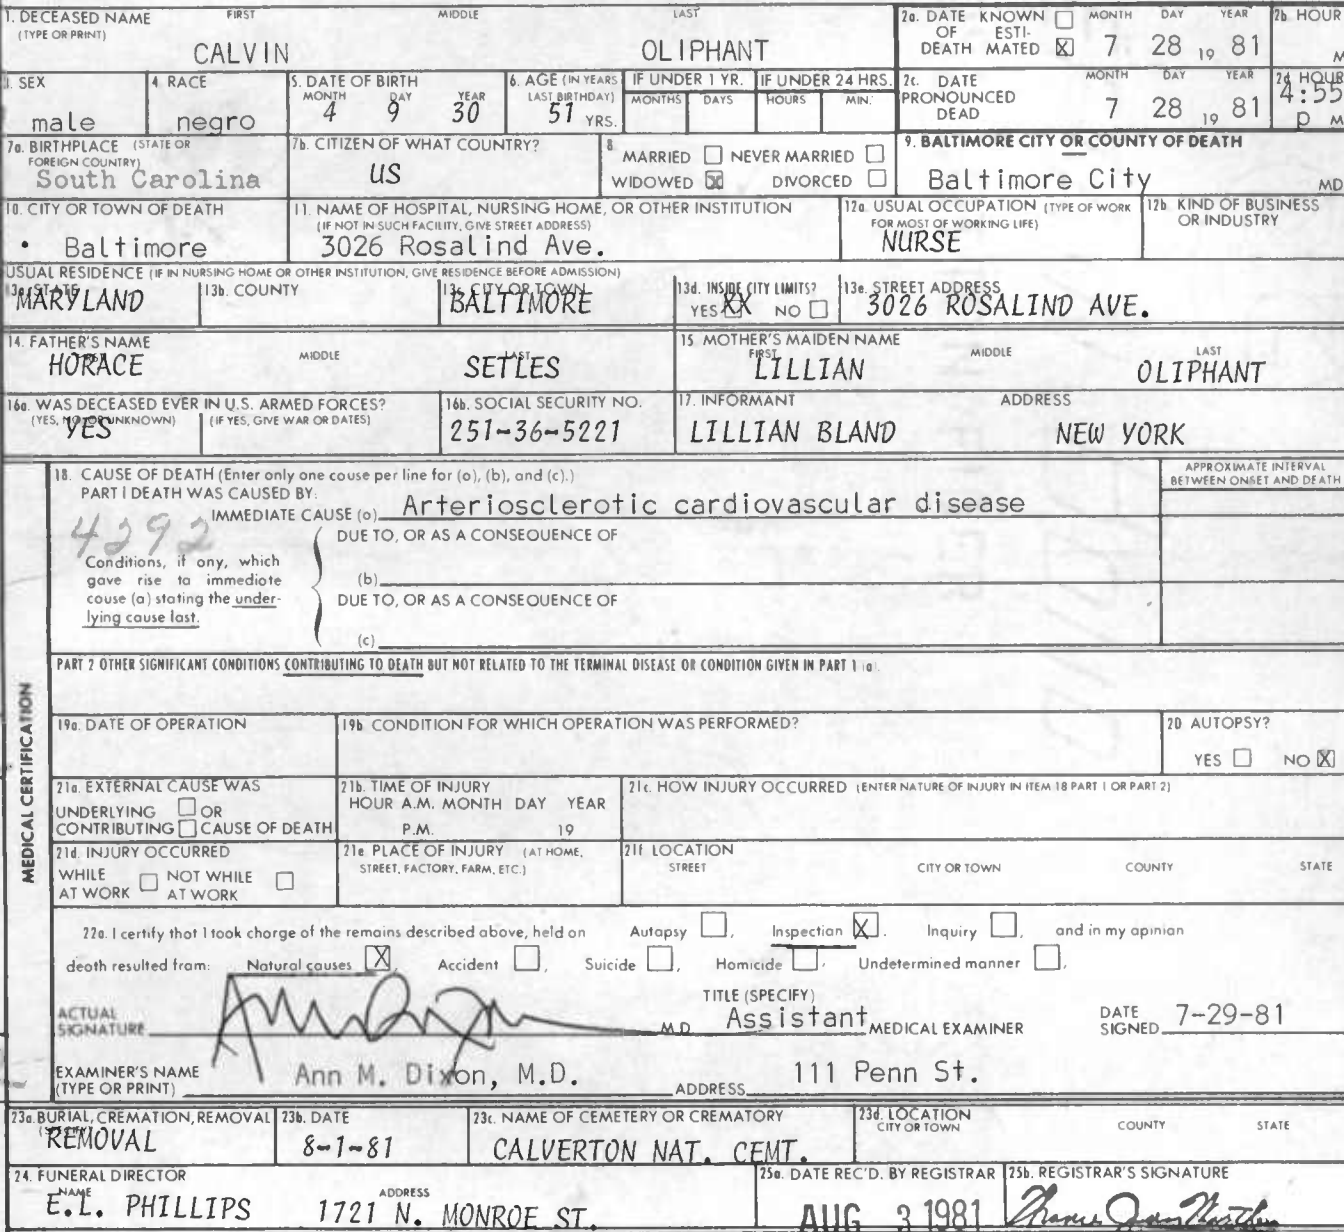 1. DECEASED NAME FIRST MIDDLE LAST
(TYPE OR PRINT)
CALVIN OLIPHANT
2a. DATE KNOWN OF ESTI- DEATH MATED X MONTH DAY YEAR
7 28 19 81
2b. HOUR
M
3. SEX
male
4. RACE
negro
5. DATE OF BIRTH
MONTH DAY YEAR
4 9 30
6. AGE (IN YEARS LAST BIRTHDAY)
51 YRS.
IF UNDER 1 YR.
MONTHS DAYS
IF UNDER 24 HRS.
HOURS MIN.
2c. DATE PRONOUNCED DEAD MONTH DAY YEAR
7 28 19 81
2d HOUR
4:55
p M
7a. BIRTHPLACE (STATE OR FOREIGN COUNTRY)
South Carolina
7b. CITIZEN OF WHAT COUNTRY?
US
8 MARRIED NEVER MARRIED
WIDOWED X DIVORCED
9. BALTIMORE CITY OR COUNTY OF DEATH
Baltimore City MD
10. CITY OR TOWN OF DEATH
Baltimore
11. NAME OF HOSPITAL, NURSING HOME, OR OTHER INSTITUTION
(IF NOT IN SUCH FACILITY, GIVE STREET ADDRESS)
3026 Rosalind Ave.
12a. USUAL OCCUPATION (TYPE OF WORK FOR MOST OF WORKING LIFE)
NURSE
12b. KIND OF BUSINESS OR INDUSTRY
USUAL RESIDENCE (IF IN NURSING HOME OR OTHER INSTITUTION, GIVE RESIDENCE BEFORE ADMISSION)
13a. STATE
MARYLAND
13b. COUNTY
13c. CITY OR TOWN
BALTIMORE
13d. INSIDE CITY LIMITS?
YES XX NO
13e. STREET ADDRESS
3026 ROSALIND AVE.
14. FATHER'S NAME MIDDLE LAST
HORACE SETLES
15 MOTHER'S MAIDEN NAME
FIRST MIDDLE LAST
LILLIAN OLIPHANT
16a. WAS DECEASED EVER IN U.S. ARMED FORCES?
(YES, NO, OR UNKNOWN) (IF YES, GIVE WAR OR DATES)
YES
16b. SOCIAL SECURITY NO.
251-36-5221
17. INFORMANT ADDRESS
LILLIAN BLAND NEW YORK
MEDICAL CERTIFICATION
18. CAUSE OF DEATH (Enter only one cause per line for (a), (b), and (c).)
PART I DEATH WAS CAUSED BY:
IMMEDIATE CAUSE (a) Arteriosclerotic cardiovascular disease
APPROXIMATE INTERVAL BETWEEN ONSET AND DEATH
4292
DUE TO, OR AS A CONSEQUENCE OF
Conditions, if any, which gave rise to immediate cause (a) stating the under-lying cause last.
(b)
DUE TO, OR AS A CONSEQUENCE OF
(c)
PART 2 OTHER SIGNIFICANT CONDITIONS CONTRIBUTING TO DEATH BUT NOT RELATED TO THE TERMINAL DISEASE OR CONDITION GIVEN IN PART 1 (a).
19a. DATE OF OPERATION
19b. CONDITION FOR WHICH OPERATION WAS PERFORMED?
20 AUTOPSY?
YES NO X
21a. EXTERNAL CAUSE WAS
UNDERLYING OR
CONTRIBUTING CAUSE OF DEATH
21b. TIME OF INJURY
HOUR A.M. MONTH DAY YEAR
P.M. 19
21c. HOW INJURY OCCURRED (ENTER NATURE OF INJURY IN ITEM 18 PART 1 OR PART 2)
21d. INJURY OCCURRED
WHILE AT WORK NOT WHILE AT WORK
21e. PLACE OF INJURY (AT HOME, STREET, FACTORY, FARM, ETC.)
21f. LOCATION
STREET CITY OR TOWN COUNTY STATE
22a. I certify that I took charge of the remains described above, held on Autopsy , Inspection X , Inquiry , and in my opinion
death resulted from: Natural causes X , Accident , Suicide , Homicide , Undetermined manner ,
ACTUAL SIGNATURE M.D.
TITLE (SPECIFY)
Assistant MEDICAL EXAMINER
DATE SIGNED 7-29-81
EXAMINER'S NAME (TYPE OR PRINT) Ann M. Dixon, M.D. ADDRESS 111 Penn St.
23a. BURIAL, CREMATION, REMOVAL
REMOVAL
23b. DATE
8-1-81
23c. NAME OF CEMETERY OR CREMATORY
CALVERTON NAT. CEMT.
23d. LOCATION
CITY OR TOWN COUNTY STATE
24. FUNERAL DIRECTOR
NAME ADDRESS
E.L. PHILLIPS 1721 N. MONROE ST.
25a. DATE REC'D. BY REGISTRAR
AUG 3 1981
25b. REGISTRAR'S SIGNATURE